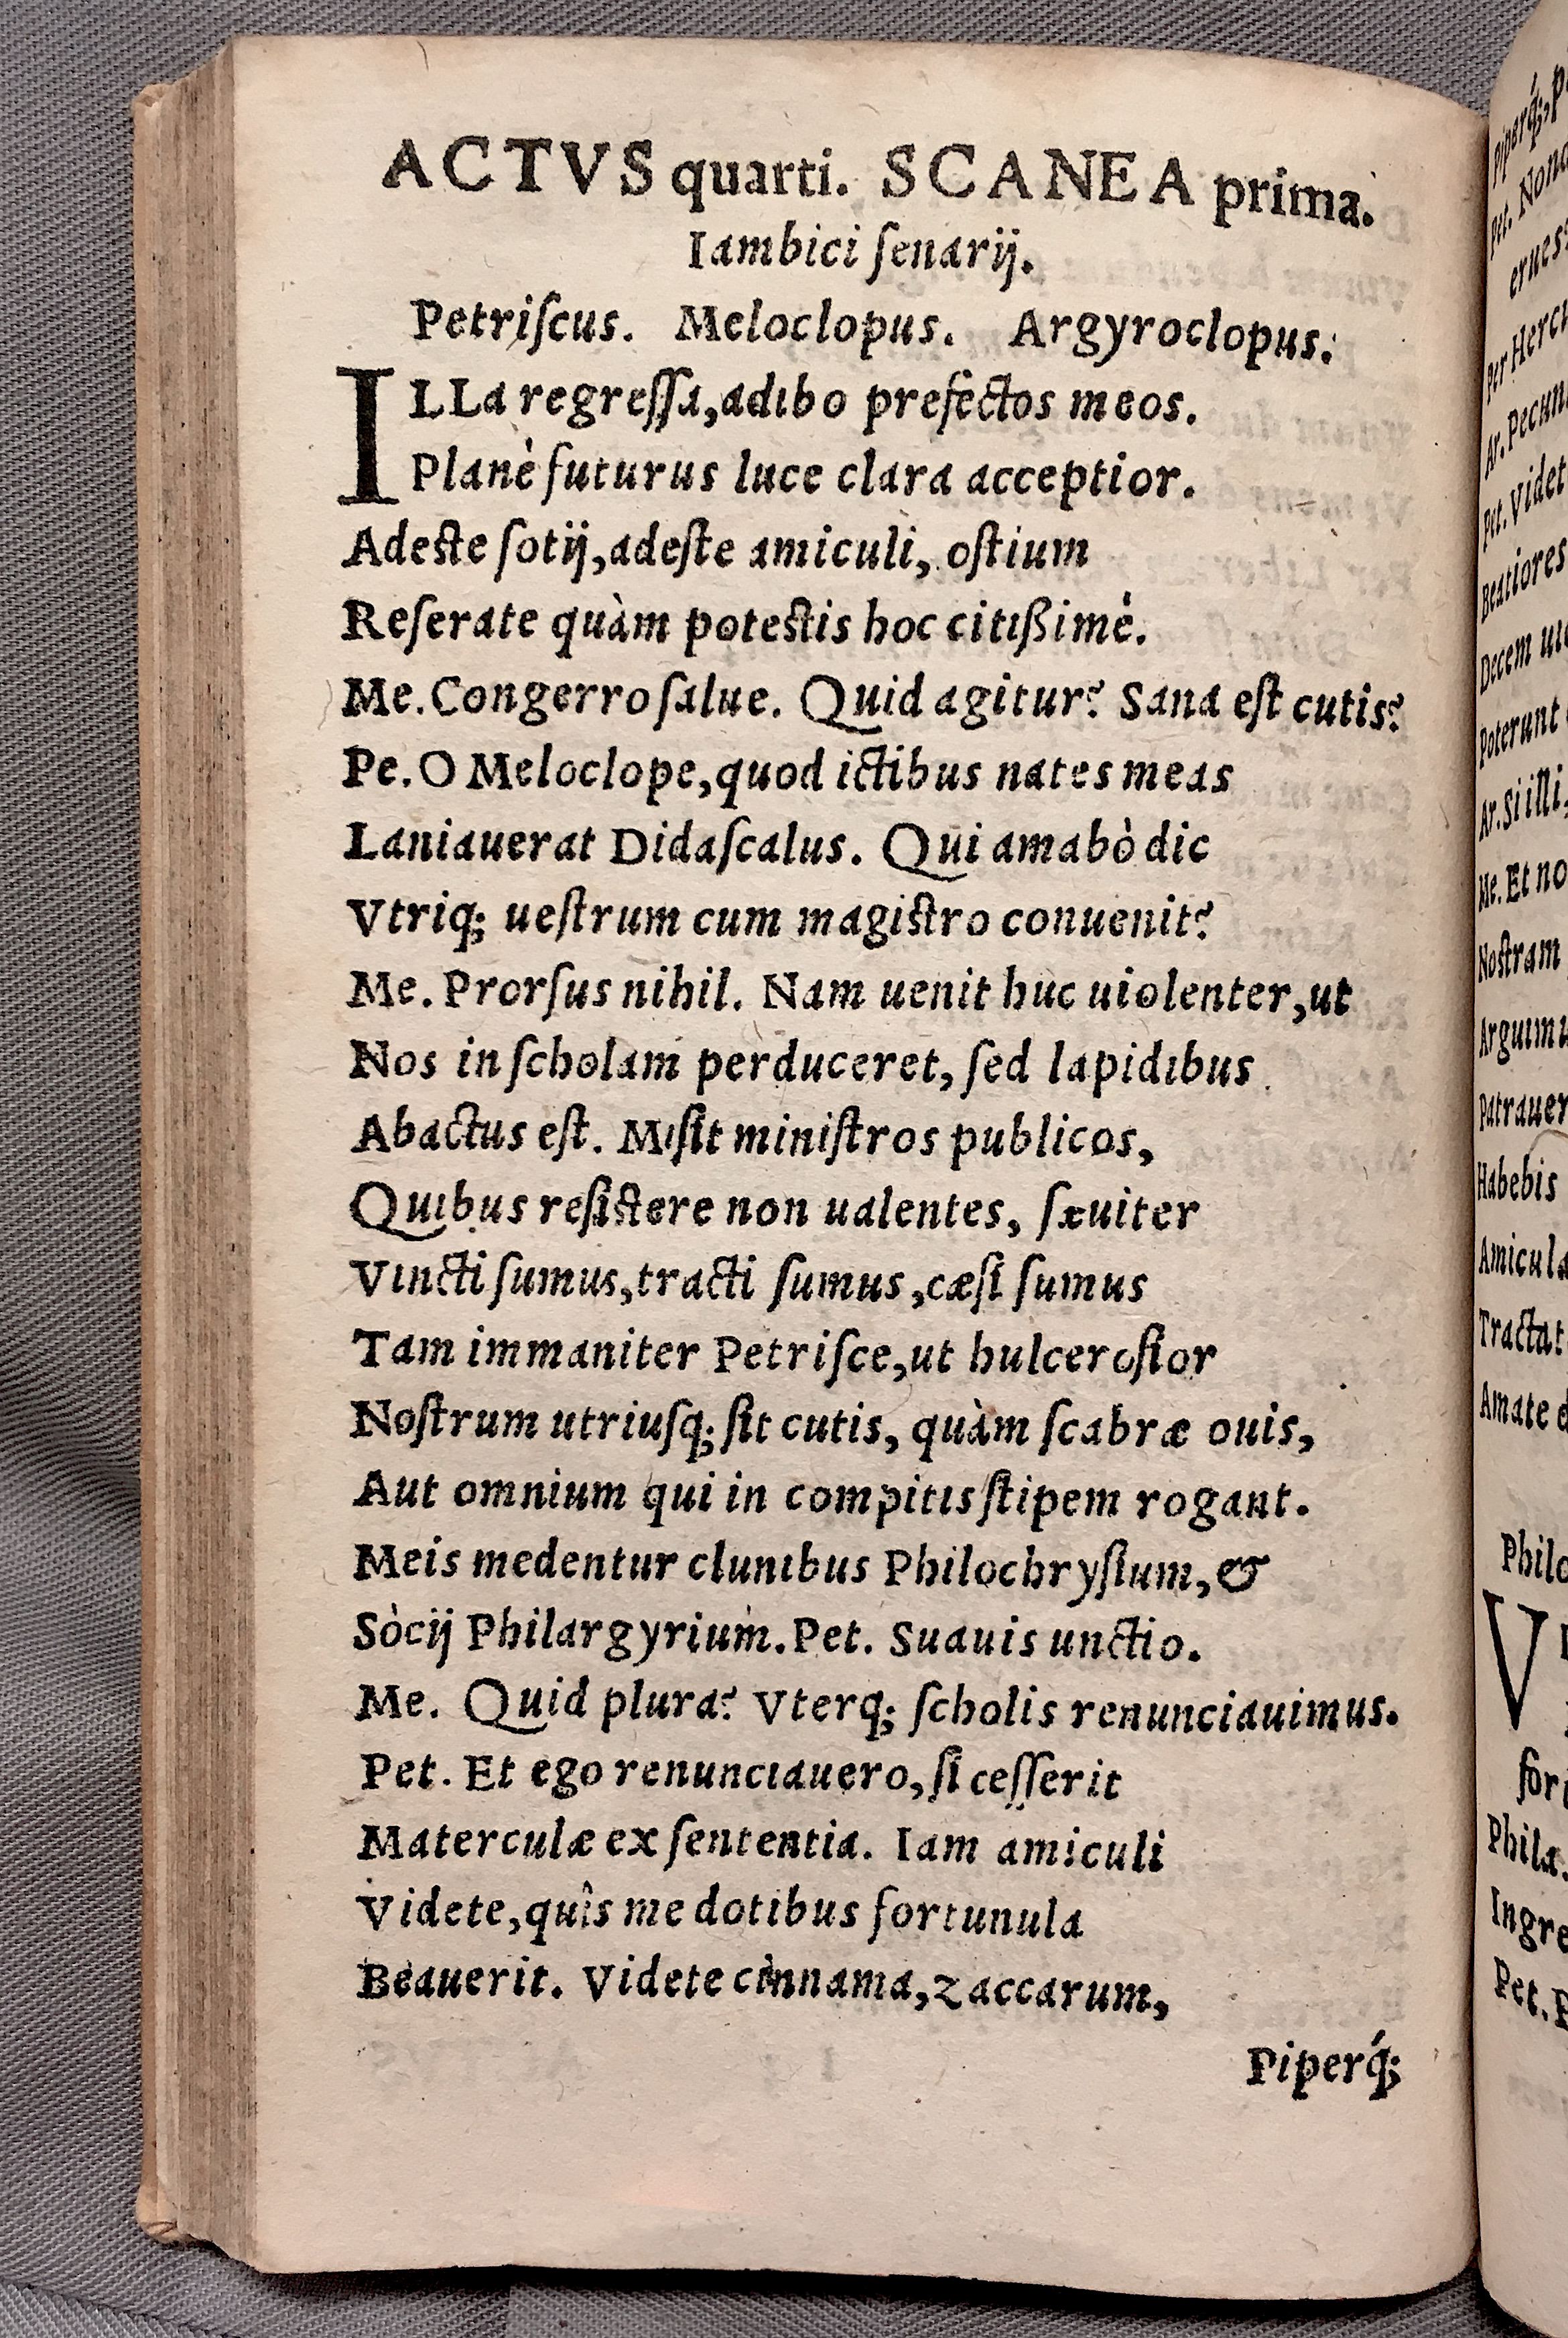 ACTVS quarti. SCANEA prima.
Iambici ſenarij.
Petriſcus. Meloclopus. Argyroclopus.
ILLa regreſſa, adibo prefectos meos.
Planè futurus luce clara acceptior.
Adeſte ſotij, adeſte amiculi, oſtium
Reſerate quàm poteſtis hoc citißimè.
Me. Congerro ſalue. Quid agitur? Sana eſt cutis?
Pe. O Meloclope, quod ictibus nates meas
Laniauerat Didaſcalus. Qui amabò dic
Vtriq; ueſtrum cum magiſtro conuenit?
Me. Prorſus nihil. Nam uenit huc uiolenter, ut
Nos in ſcholam perduceret, ſed lapidibus
Abactus eſt. Miſit miniſtros publicos,
Quibus reſiſtere non ualentes, ſæuiter
Vincti ſumus, tracti ſumus, cæſi ſumus
Tam immaniter Petriſce, ut hulceroſior
Noſtrum utriuſq; ſit cutis, quàm ſcabræ ouis,
Aut omnium qui in compitis ſtipem rogant.
Meis medentur clunibus Philochryſium, &
Sòcij Philargyrium. Pet. Suauis unctio.
Me. Quid plura? Vterq; ſcholis renunciauimus.
Pet. Et ego renunciauero, ſi ceſſerit
Materculæ ex ſententia. Iam amiculi
Videte, quîs me dotibus fortunula
Beauerit. Videte cinnama, zaccarum,
Piperq́;
Piperq́;
Pet.
Per
Ar.
Pet. Videt
Beatiores
Decem
Poterunt
Ar. Si illi,
Me. Et no
Noſtram
Arguimu
Patrauer
Habebis
Amicula
Tractat
Amate
Philo
V
Phila.
Ingre
Pet.